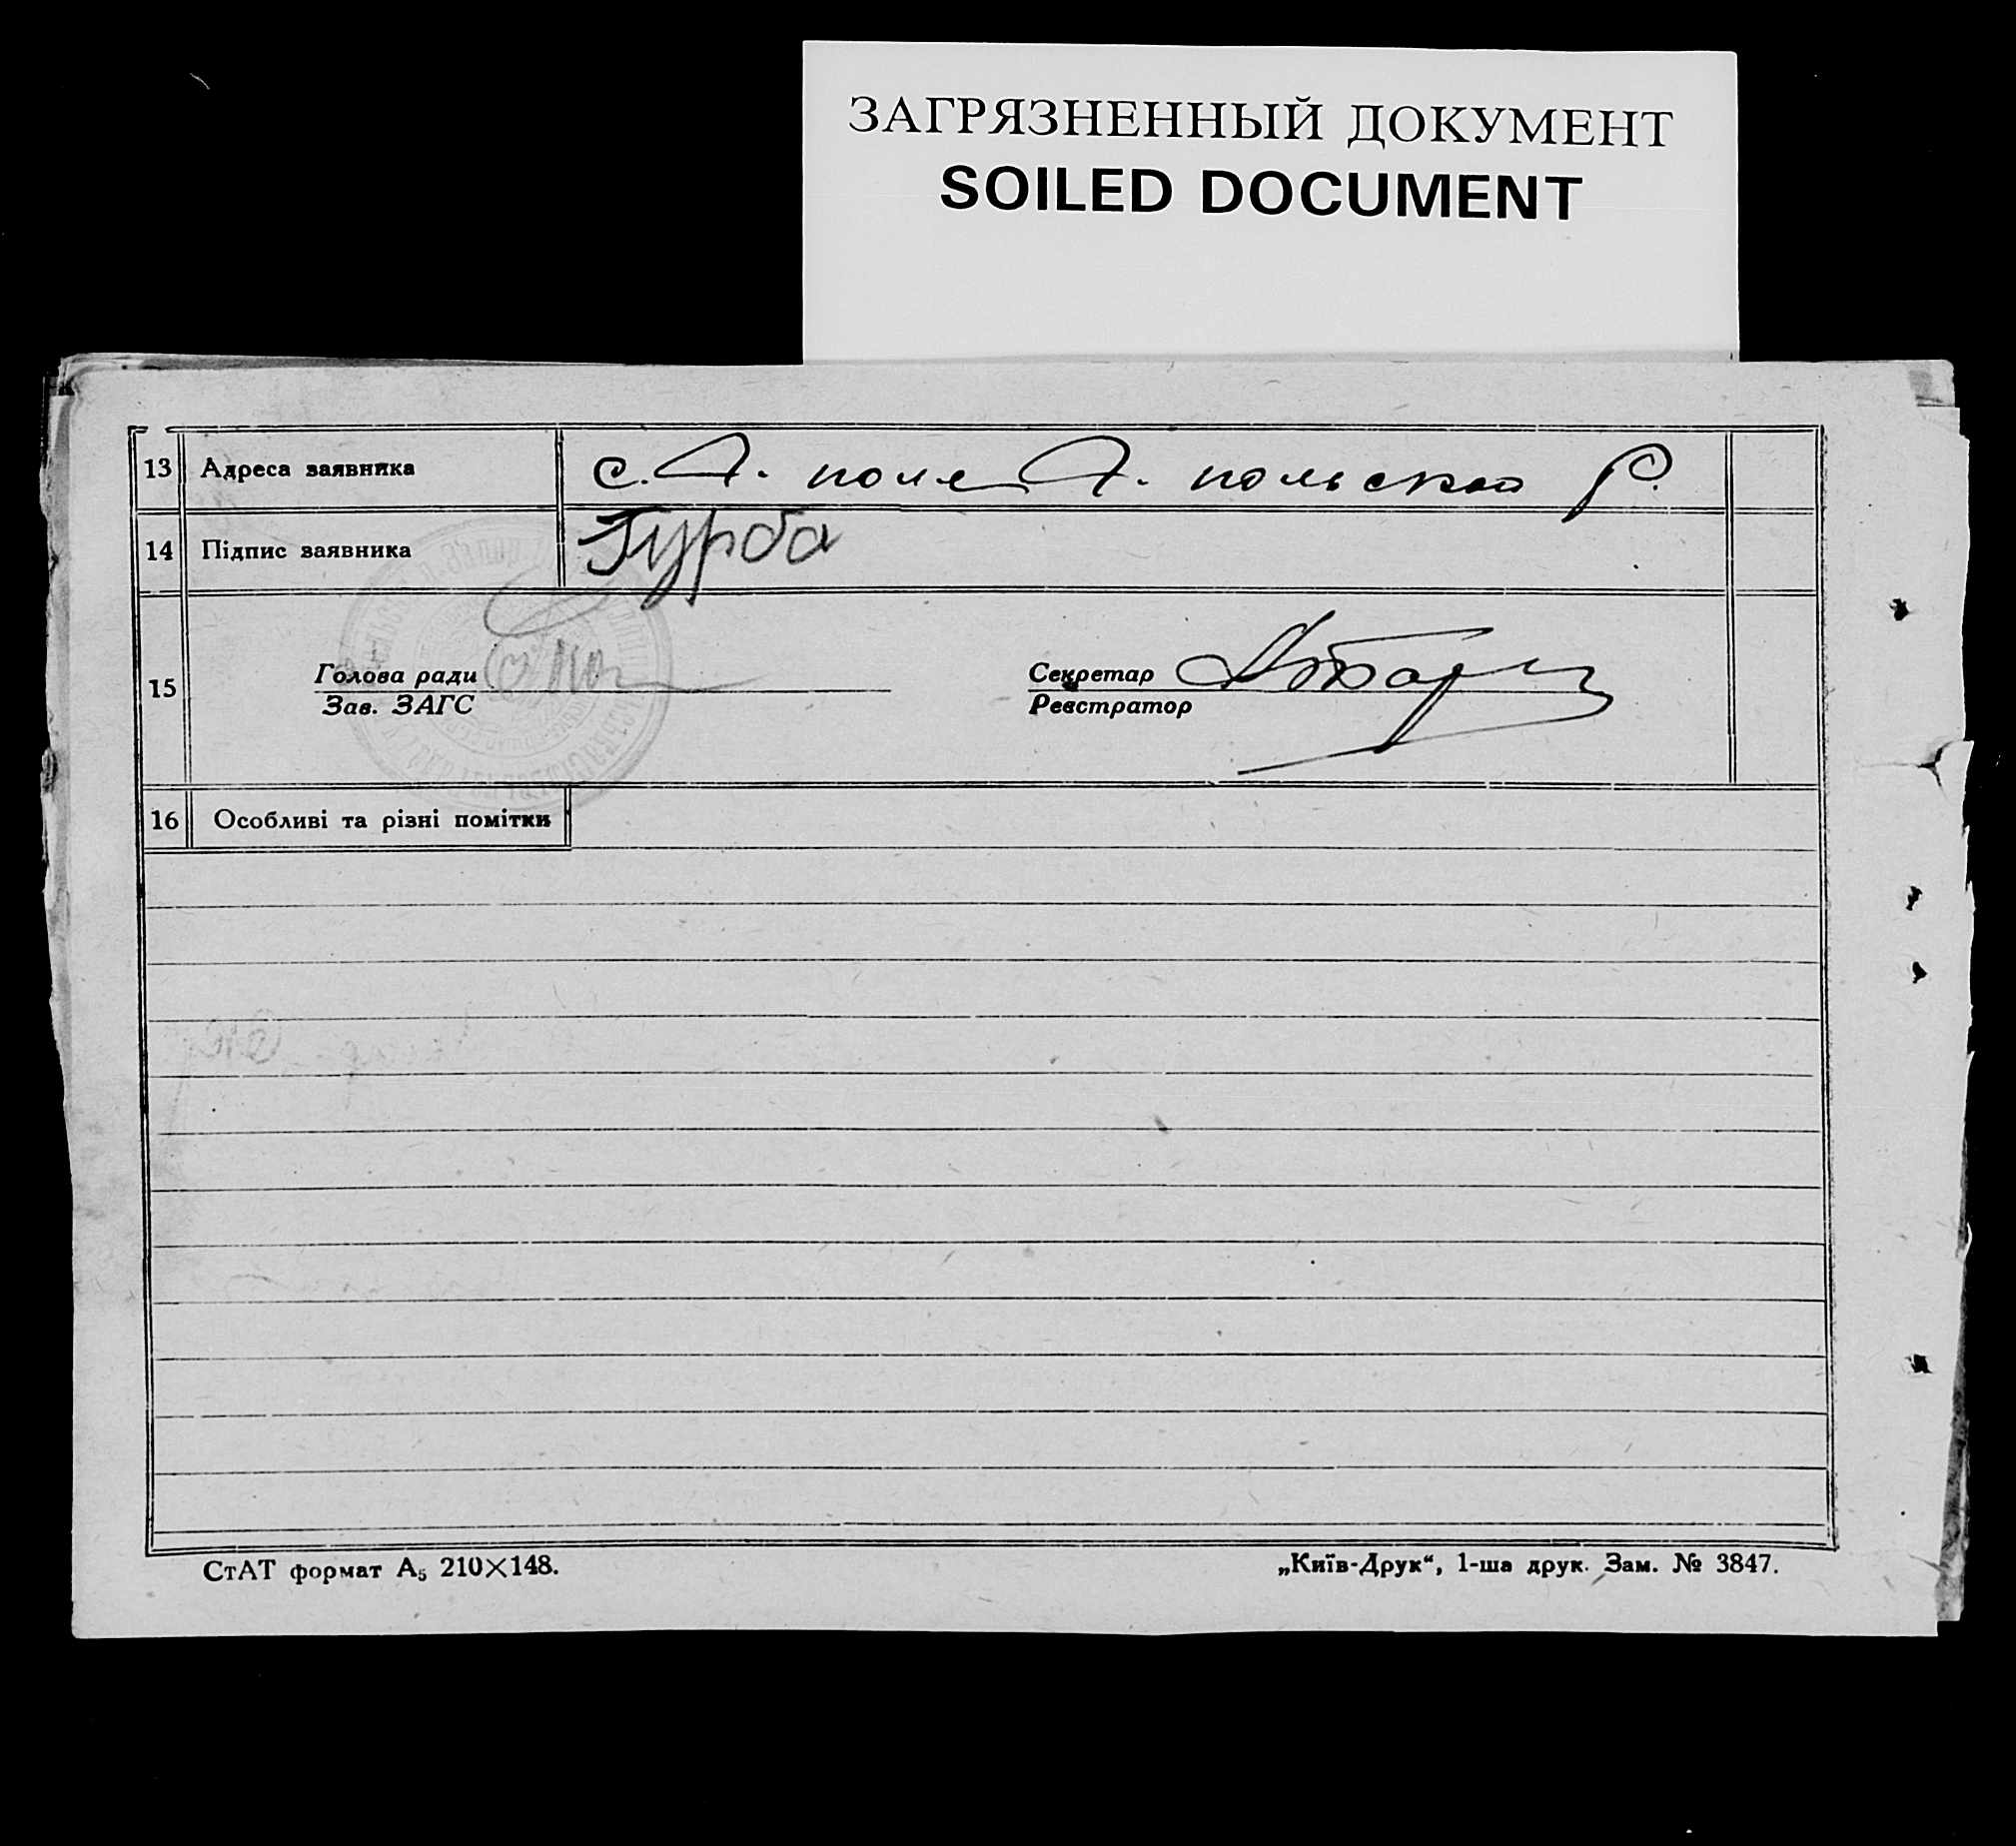 ЗАГРЯЗНЕННЫЙ ДОКУМЕНТ
SOILED DOCUMENT
13 Адреса заявника с. А. поле А. польског Р.
14 Підпис заявника Гурба
15
Голова ради Секретар
Зав. ЗАГС Реєстратор
16 Особливі та різні помітки
СтАТ формат А₅ 210×148. „Київ-Друк“, 1-ша друк. Зам. № 3847.